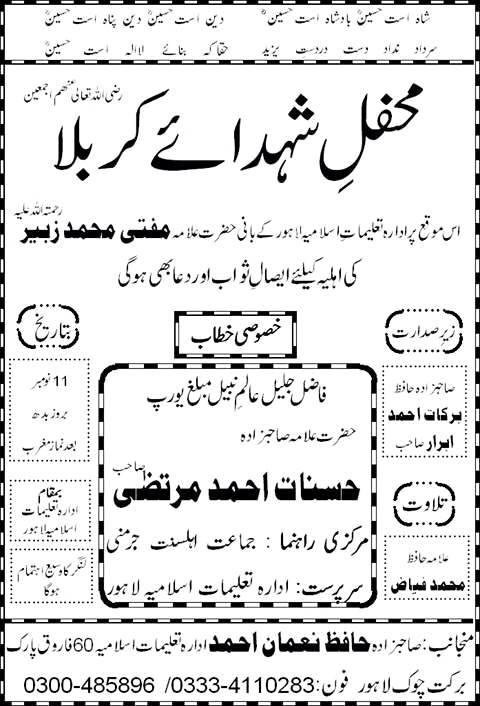 شاہ است حسینؓ بادشاہ است حسینؓ دین است حسینؓ دین پناہ است حسینؓ
سرداد نداد دست دردست یزید حقا کہ بنائے لاالہ است حسینؓ
محفلِ شہدائے کربلا رضی اللہ تعالیٰ عنھم اجمعین
اس موقع پر ادارہ تعلیماتِ اسلامیہ لاہور کے بانی حضرت علامہ مفتی محمد زبیر رحمتہ اللہ علیہ
کی اہلیہ کیلئے ایصالِ ثواب اور دعا بھی ہوگی
زیرِ صدارت
صاحبزادہ حافظ
برکات احمد
ابرار صاحب
تلاوت
علامہ حافظ
محمد فیاض
خصوصی خطاب
فاضل جلیل عالمِ نبیل مبلغ یورپ
حضرت علامہ صاحبزادہ
حسنات احمد مرتضیٰ صاحب
مرکزی راہنما : جماعت اہلسنت جرمنی
سرپرست: ادارہ تعلیمات اسلامیہ لاہور
بتاریخ
11 نومبر
بروز بدھ
بعد نماز مغرب
بمقام
ادارہ تعلیمات
اسلامیہ لاہور
لنگر کا وسیع اہتمام
ہوگا
منجانب: صاحبزادہ حافظ نعمان احمد ادارہ تعلیمات اسلامیہ 60 فاروق پارک
برکت چوک لاہور فون: 0333-4110283 / 0300-485896